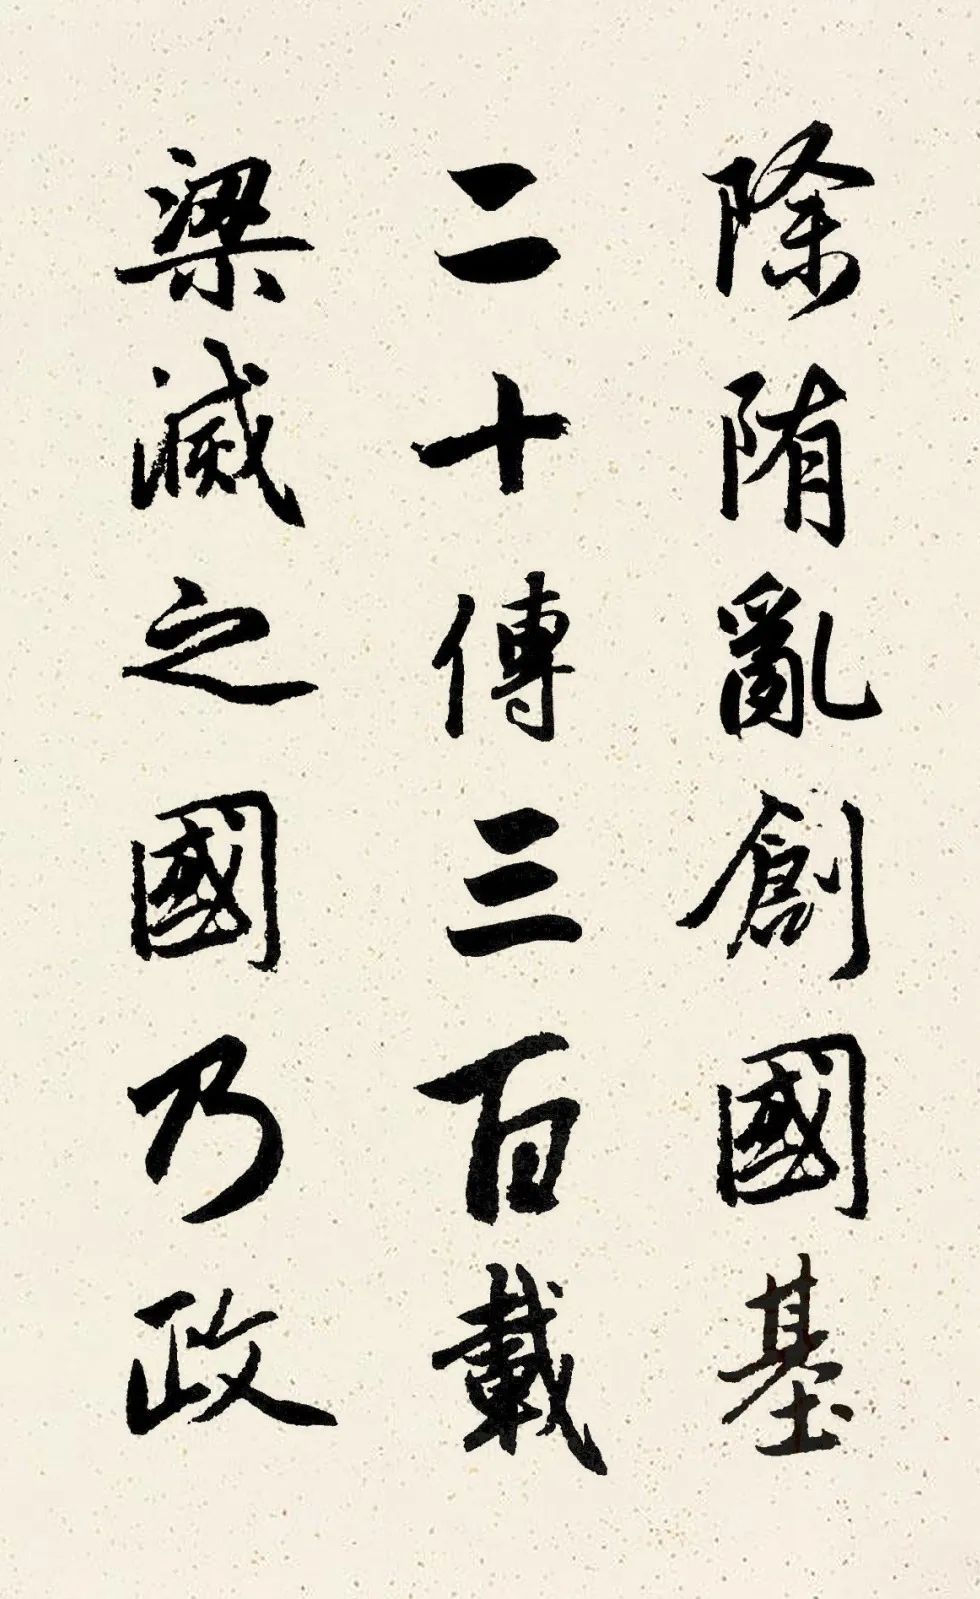 除隋亂創國基
二十傳三百載
梁滅之國乃政